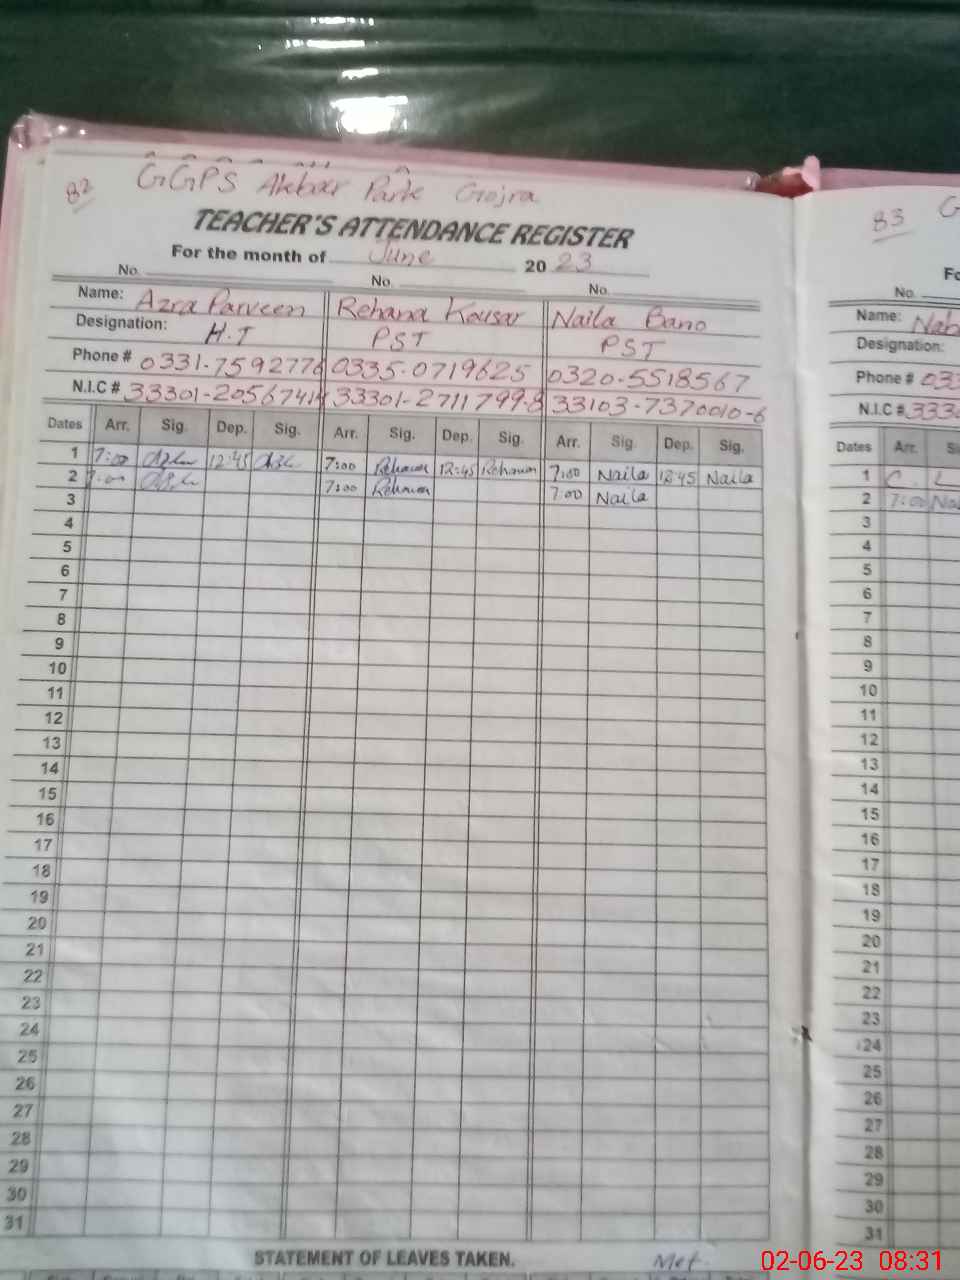 82
GGPS Akbar Park Gojra
TEACHER'S ATTENDANCE REGISTER
For the month of June 20 23
No. No. No.
Name: Azra Parveen Rehana Kousar Naila Bano
Designation: H.T PST PST
Phone # 0331-7592776 0335-0719625 0320-5518567
N.I.C # 33301-2056741 33301-2711799-8 33103-7370010-6
Dates Arr. Sig. Dep. Sig. Arr. Sig. Dep. Sig. Arr. Sig. Dep. Sig.
1 7:00 12:45 7:00 Rehana 12:45 Rehana 7:00 Naila 12:45 Naila
2 7:00 7:00 Rehana 7:00 Naila
3
4
5
6
7
8
9
10
11
12
13
14
15
16
17
18
19
20
21
22
23
24
25
26
27
28
29
30
31
STATEMENT OF LEAVES TAKEN.
83 G
No.
Name: Nab
Designation:
Phone # 033
N.I.C # 333
Dates Arr.
1 C. L
2 7:00 Na
3
4
5
6
7
8
9
10
11
12
13
14
15
16
17
18
19
20
21
22
23
24
25
26
27
28
29
30
31
02-06-23 08:31